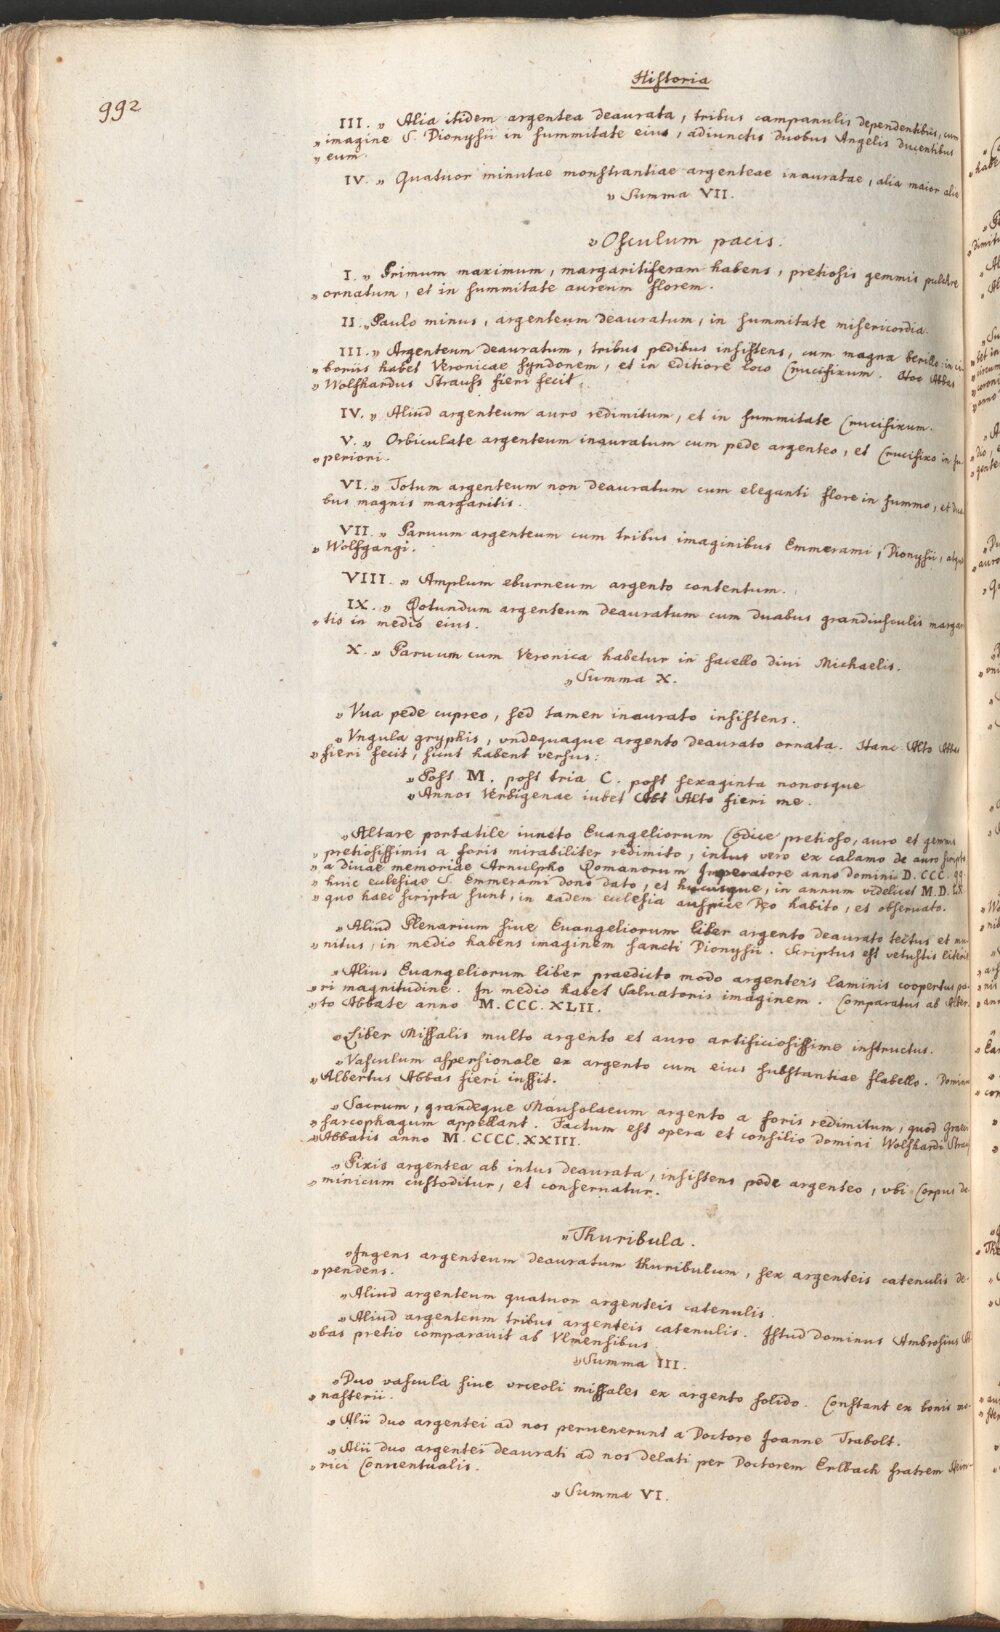 Historia
992
III. „ Alia itidem argentea deaurata, tribus campanulis dependentibus, cum
„ imagine S. Dionysii in summitate eius, adiunctis duobus Angelis ducentibus
„ eum.
IV. „ Quatuor minutae monstrantiae argenteae inauratae, alia maior alia
„ Summa VII.
„ Osculum pacis.
I. „ Primum maximum, margaritiferam habens, pretiosis gemmis pulchre
„ ornatum, et in summitate aureum florem.
II. „ Paulo minus, argenteum deauratum, in summitate misericordia.
III. „ Argenteum deauratum, tribus pedibus insistens, cum magna berillo: in
„ boriis habet Veronicae syndonem, et in editiore loco Crucifixum. Hoc Abbas
„ Wolfhardus Strauss fieri fecit.
IV. „ Aliud argenteum auro redimitum, et in summitate Crucifixum.
V. „ Orbiculate argenteum inauratum cum pede argenteo, et Crucifixo in su
„ periori.
VI. „ Totum argenteum non deauratum cum eleganti flore in summo, et dua
bus magnis margaritis.
VII. „ Paruum argenteum cum tribus imaginibus Emmerami, Dionysii, atque
„ Wolfgangi.
VIII. „ Amplum eburneum argento contentum.
IX. „ Rotundum argenteum deauratum cum duabus grandiusculis margari
„ tis in medio eius.
X. „ Paruum cum Veronica habetur in sacello diui Michaelis.
„ Summa X.
„ Vua pede cupreo, sed tamen inaurato insistens.
„ Vngula gryphis, vndequaque argento deaurato ornata. Hanc Alto Abbas
„ fieri fecit, sunt habent versus:
„ Post M. post tria C. post sexaginta nonosque
„ Annos Verbigenae iubet Abt Alto fieri me.
„ Altare portatile iuncto Euangeliorum Codice pretioso, auro et gemmis
„ pretiosissimis a foris mirabiliter redimito, intus vero ex calamo de auro scripto
„ a diuae memoriae Arnulpho Romanorum Imperatore anno domini D. CCC. 99.
„ huic ecclesiae S. Emmerami dono dato, et hucusque, in annum videlicet M. D. LX.
„ quo haec scripta sunt, in eadem ecclesia auspice Deo habito, et obseruato.
„ Aliud Plenarium siue Euangeliorum liber argento deaurato tectus et mu
„ nitus, in medio habens imaginem sancti Dionysii. Scriptus est vetustis literis
„ Alius Euangeliorum liber praedicto modo argenteis laminis coopertus pa
„ ri magnitudine. In medio habet Saluatoris imaginem. Comparatus ab Alber
„ to Abbate anno M. CCC. XLII.
„ Liber Missalis multo argento et auro artificiosissime instructus.
„ Vasculum aspersionale ex argento cum eius substantiae flabello. Dominus
„ Albertus Abbas fieri iussit.
„ Sacrum, grandeque Mausolaeum argento a foris redimitum, quod Graeci
„ sarcophagum appellant. Factum est opera et consilio domini Wolfhardi Strauss
„ Abbatis anno M. CCCC. XXIII.
„ Pixis argentea ab intus deaurata, insistens pede argenteo, vbi Corpus do
„ minicum custoditur, et conseruatur.
„ Thuribula.
„ Ingens argenteum deauratum thuribulum, sex argenteis catenulis de
„ pendens.
„ Aliud argenteum quatuor argenteis catenulis.
„ Aliud argenteum tribus argenteis catenulis. Istud dominus Ambrosius Ab
„ bas pretio comparauit ab Vlmensibus.
„ Summa III.
„ Duo vascula siue vrceoli missales ex argento solido. Constant ex bonis mo
„ nasterii.
„ Alii duo argentei ad nos peruenerunt a Doctore Joanne Trabolt.
„ Alii duo argentei deaurati ad nos delati per Doctorem Erlbach fratrem Hein
„ rici Conuentualis.
„ Summa VI.